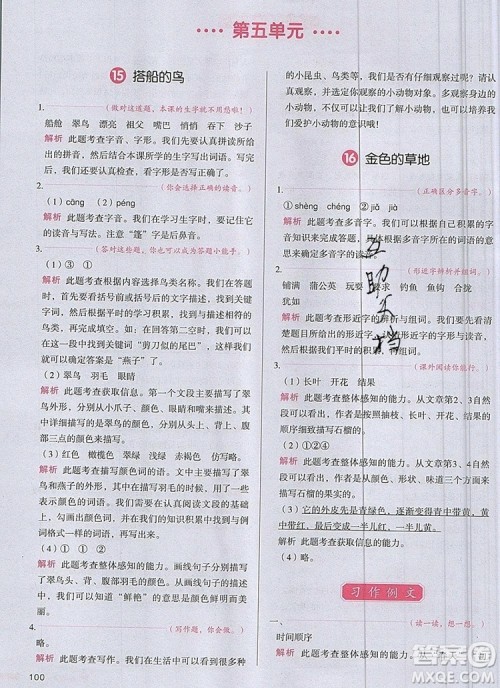 第五单元
15 搭船的鸟
1.
(做对这道题，本课的生字就不用愁啦！)
船舱 翠鸟 漂亮 祖父 嘴巴 悄悄 吞下 沙子
解析 此题考查字音、字形。我们需要认真拼读所给出的拼音，然后结合本课所学的生字写出词语。写完后，看看字形是否正确。
2.
(你会选择正确的读音。)
(1)cāng (2)péng
解析 此题考查字音。我们在学习生字时，要记住它的读音与写法。注意“篷”的读音是后鼻音。
3.
(答对这些题，你可以成为阅读小能手。)
(1)③ ①
解析 此题考查在文中提取信息的能力。在答题前，首先要阅读所给的文字描述，然后找到关键字或关键词，再和每一个选项进行对比，就可以确定答案了。例如，在第二空中，我们可以根据语境中的这一段话中关键词“剪刀似的尾巴”，然后观察图片就能确定答案是“燕子”了。
(2)翠鸟 羽毛 眼睛
解析 此题考查获取信息。第一个文段主要描写了翠鸟外形，分别从小爪子、颜色、眼睛和嘴进行描写。其中详细描写了颜色，又从头上、背上、腹部三点的颜色来描写。
(3)红色 橄榄色 翠绿 浅绿 赤褐色 赤褐色
解析 此题考查词语积累。我们在平时的阅读中，会遇到一些表示颜色的词语。我们先从阅读文段中找到一些描写颜色的词语，再根据自己的知识积累中找到与例词格式一样的词语，写出来就可以了。
(4)① ① ②
解析 此题考查整体感知的能力。画线句子分别描写了翠鸟头、背上、腹部羽毛和颜色。画线句子写出翠鸟羽毛颜色的“鲜艳”的意思是新鲜而美丽，颜色明亮。
4.
(写作题，你准备好了吗？)
(1)略。
解析 此题考查写作。同学们，我们在生活中遇到
100
的小昆虫、鸟类等，我们是否有仔细观察过它们呢？题中要求写自己观察过的小动物对象。多观察身边的小动物，可以了解小动物的生活，也可以培养我们爱护小动物的情感。
16 金色的草地
1.
(正确区分多音字。)
(1)shèng chéng (2)jiǎ jià
解析 此题考查多音字。我们可以根据自己积累的知识来完成答题，大多数多音字在不同的词语中读音是不同的，我们可以根据所给的词语的意思来确定答案中多音字的读音。
2.
(形近字辨析并组词。)
铺满 蒲公英 玩耍 要求 钓鱼 鱼钩 合拢
犹如
解析 此题考查形近字的辨析与组词。我们要先认清楚所给形近字，根据平时的积累进行组词。
3.
(课外阅读你能行。)
(1)长叶 开花 结果
解析 此题考查整体感知的能力。从文章第2自然段的内容可以知道，作者从抽枝、长叶、开花、结果的顺序描写石榴的。
(2)①②④
解析 此题考查整体感知的能力。从文章第3自然段可以知道，作者从颜色、形状、味道三个方面具体描写石榴的。
(3)它的外皮先是青绿色，逐渐变成青中带黄，黄中带红，最后成了一半儿红，一半儿黄。
解析 此题考查获取信息的能力。
(4)略。
习作例文
一、
(读一读，想一想。)
时间顺序
解析 此题考查整体感知的能力。从文章的第1自
互助文档
答案圈
MXQE.COM